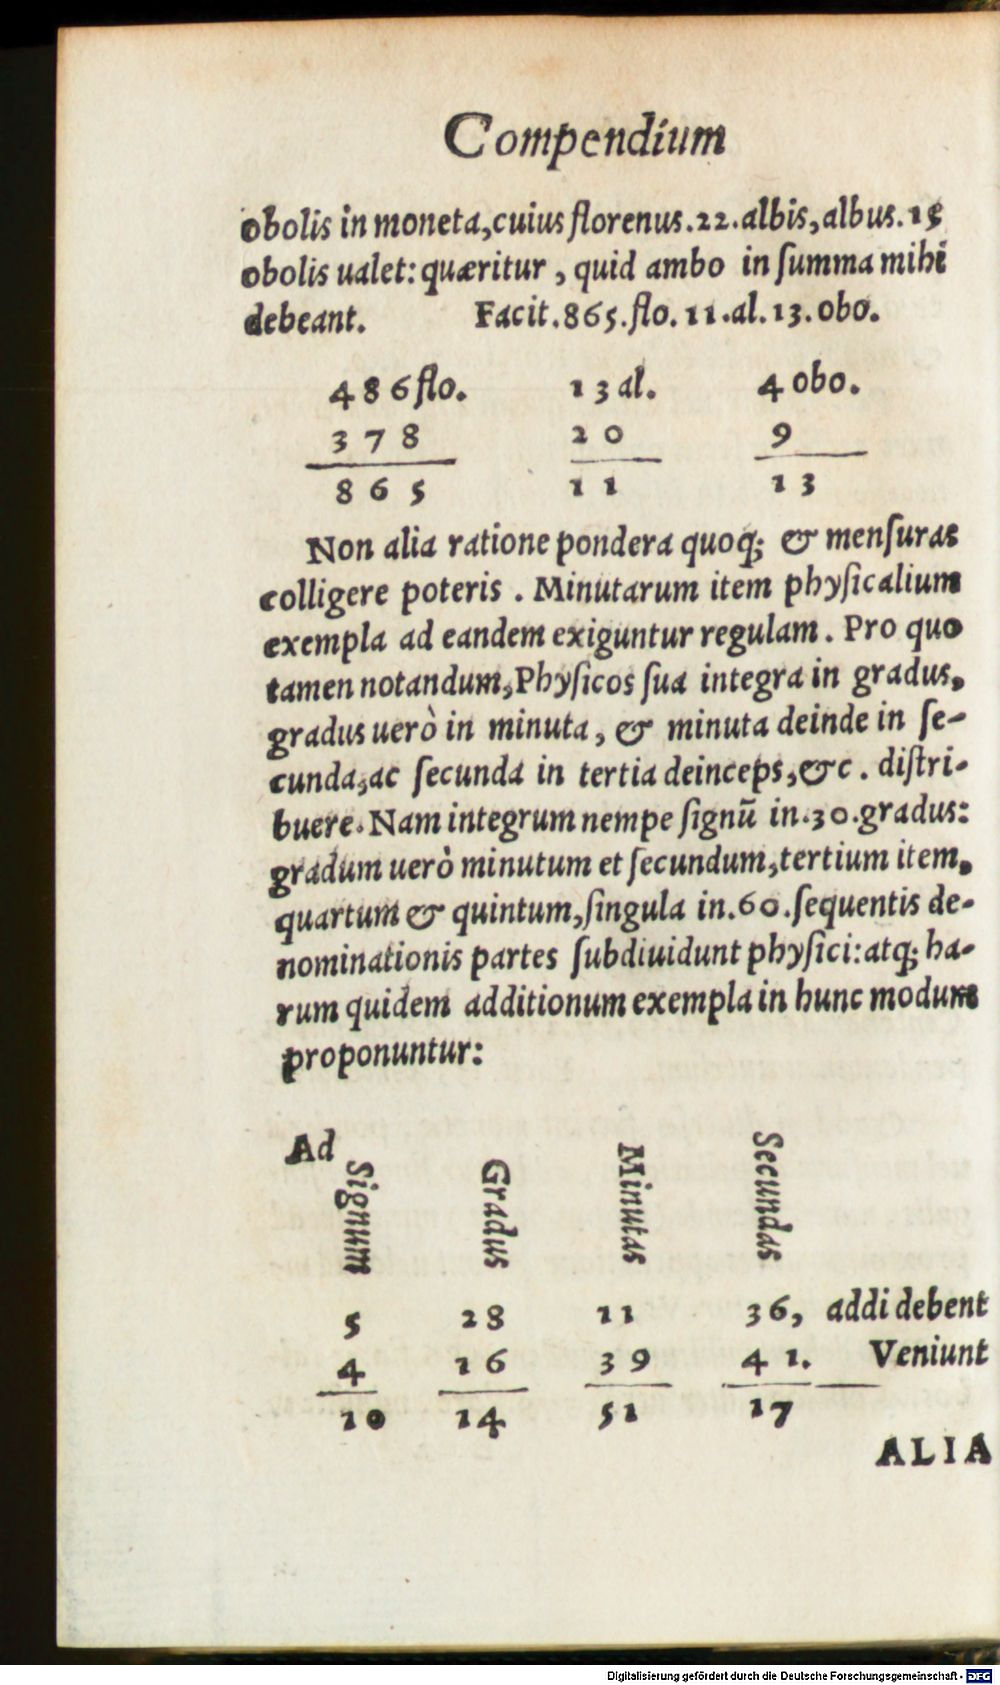 Compendium
obolis in moneta, cuius florenus.22.albis, albus.15
obolis ualet: quæritur, quid ambo in ſumma mihi
debeant. Facit.865.flo.11.al.13.obo.
486 flo. 13 al. 4 obo.
378 20 9
865 11 13
Non alia ratione pondera quoq; & menſuras
colligere poteris. Minutarum item phyſicalium
exempla ad eandem exiguntur regulam. Pro quo
tamen notandum, Phyſicos ſua integra in gradus,
gradus uerò in minuta, & minuta deinde in ſe-
cunda, ac ſecunda in tertia deinceps, &c. diſtri-
buere. Nam integrum nempe ſignū in.30.gradus:
gradum uerò minutum et ſecundum, tertium item,
quartum & quintum, ſingula in.60.ſequentis de-
nominationis partes ſubdiuidunt phyſici: atq; ha-
rum quidem additionum exempla in hunc modum
proponuntur:
Ad Signum Gradus Minutas Secundas
5 28 11 36, addi debent
4 16 39 41. Veniunt
10 14 51 17
ALIA
Digitalisierung gefördert durch die Deutsche Forschungsgemeinschaft - DFG